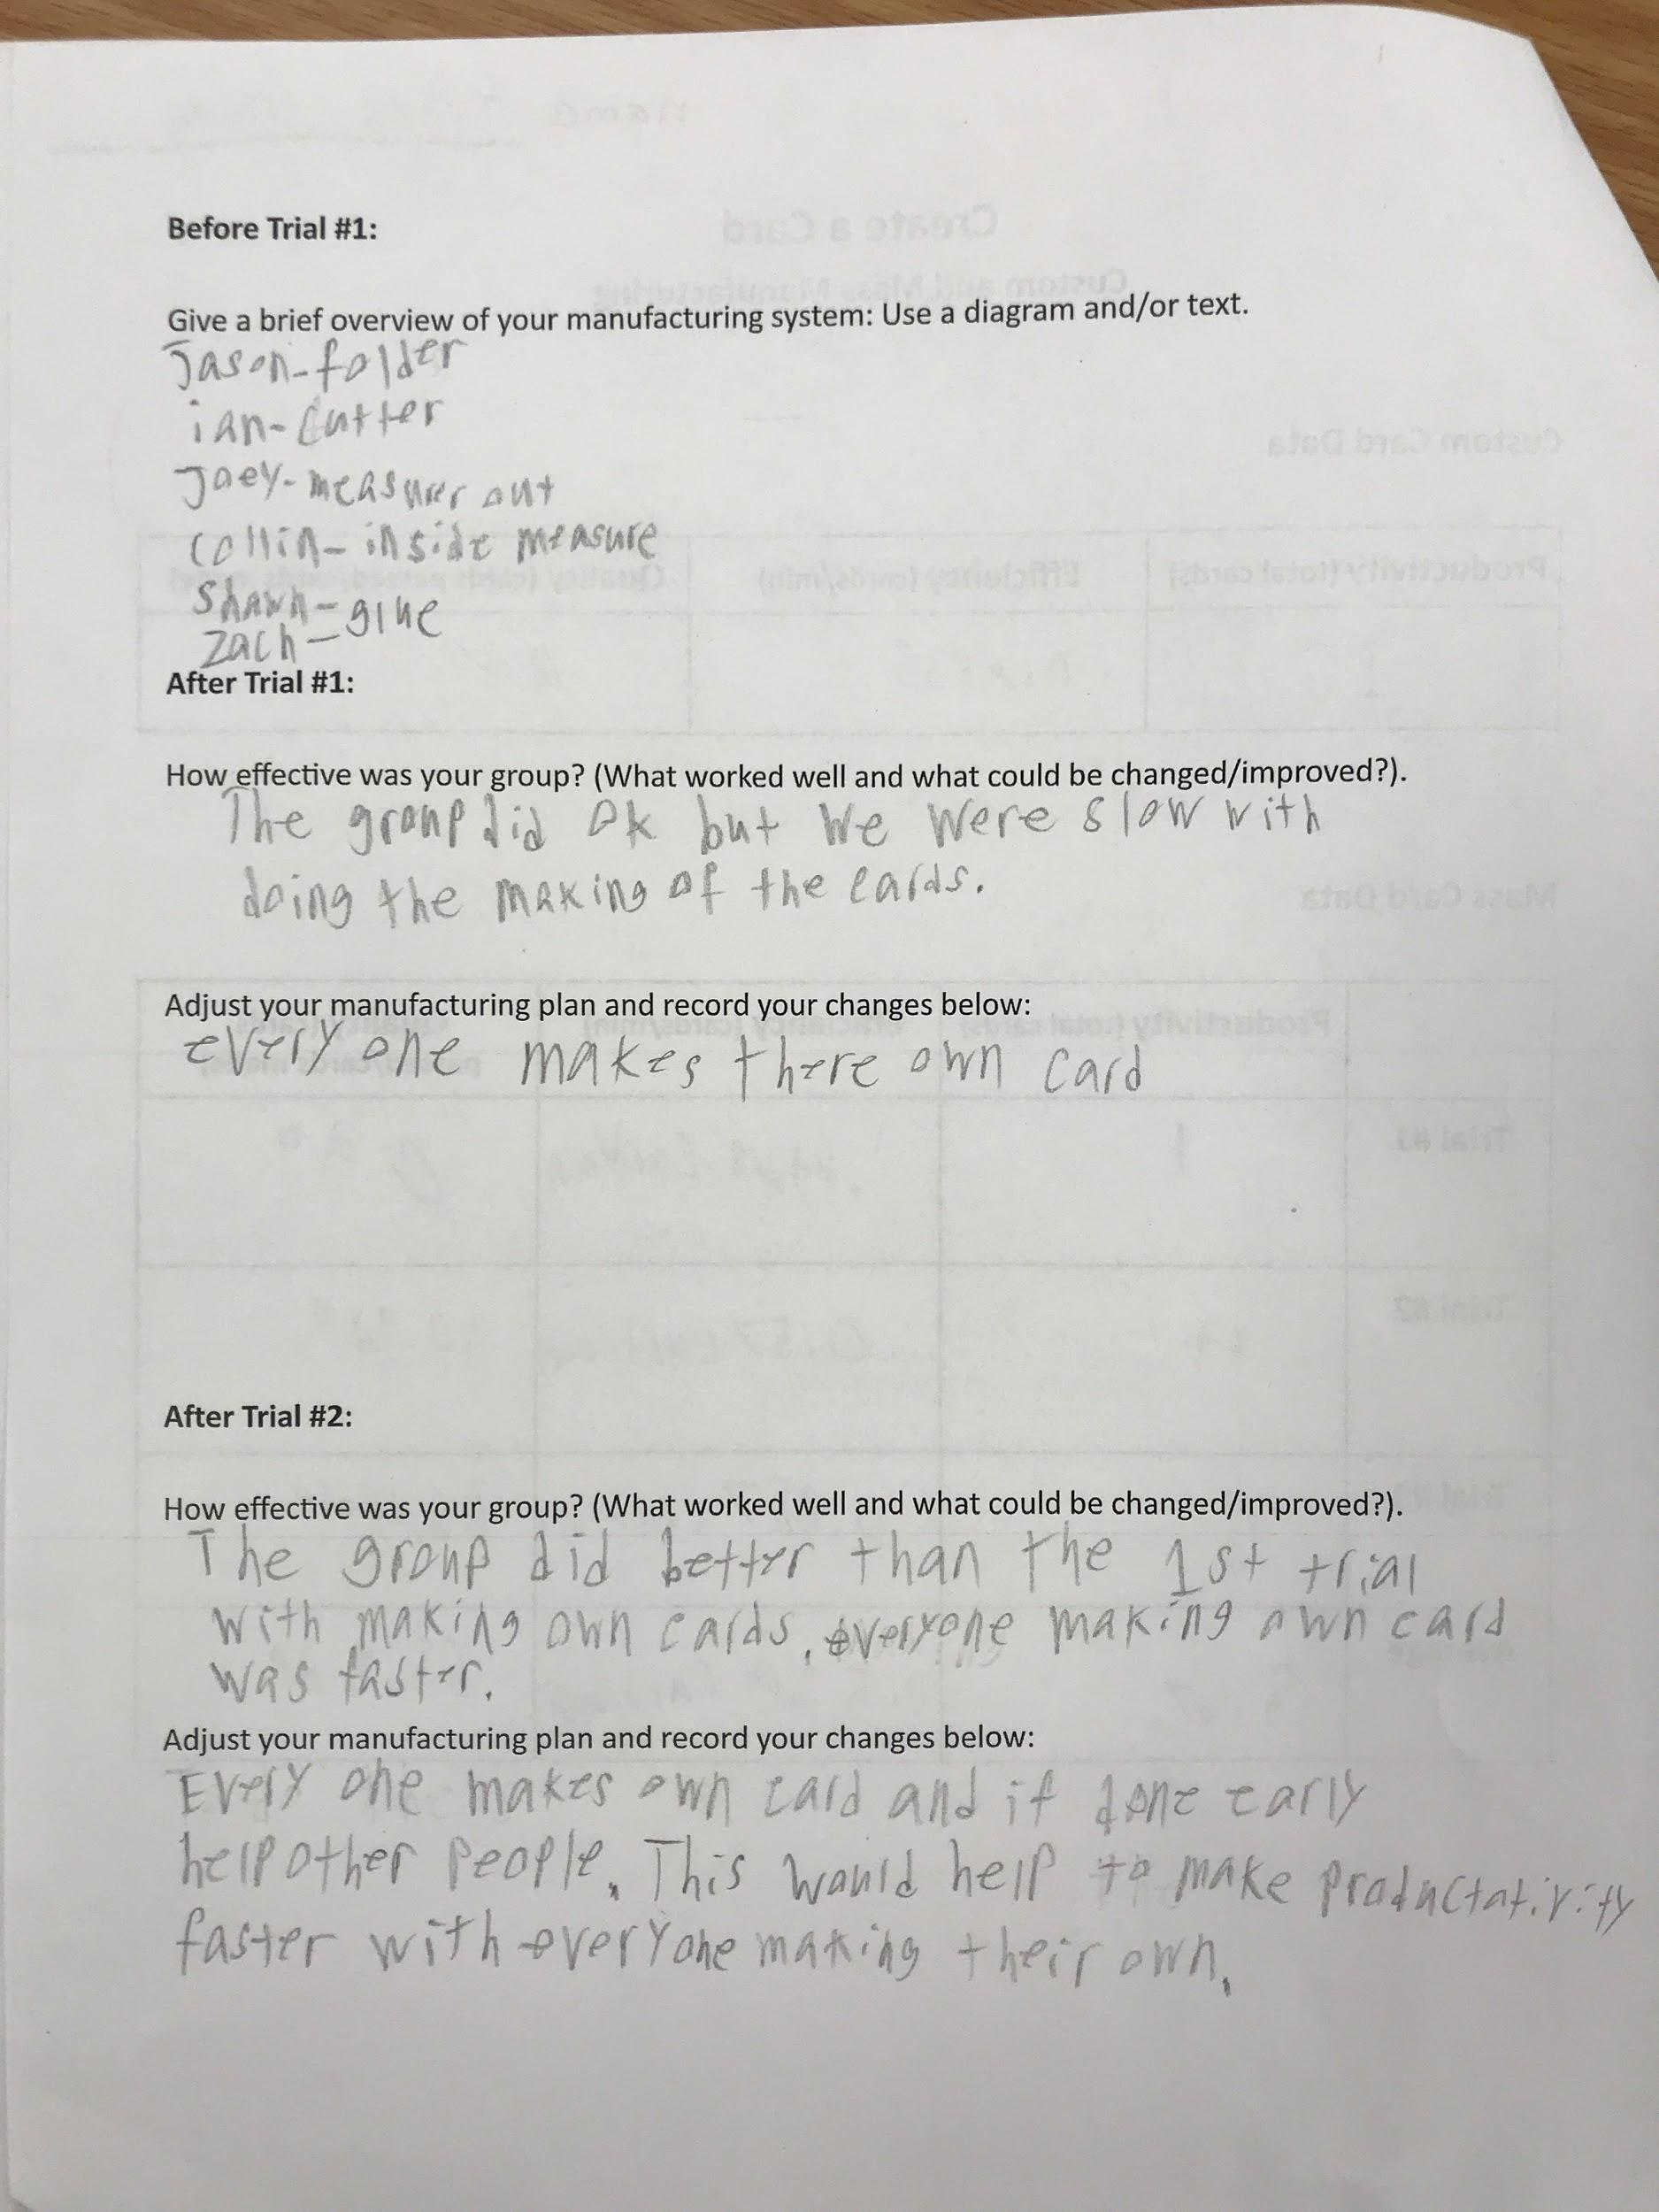 Before Trial #1:
Give a brief overview of your manufacturing system: Use a diagram and/or text.
Jason-folder
ian-Cutter
Joey-measurer out
collin-inside measure
Shawn-glue
Zach-
After Trial #1:
How effective was your group? (What worked well and what could be changed/improved?).
The group did ok but we were slow with
doing the making of the cards.
Adjust your manufacturing plan and record your changes below:
every one makes there own card
After Trial #2:
How effective was your group? (What worked well and what could be changed/improved?).
The group did better than the 1st trial
with making own cards, everyone making own card
was faster.
Adjust your manufacturing plan and record your changes below:
Every one makes own card and if done early
help other people. This would help to make productativity
faster with everyone making their own.